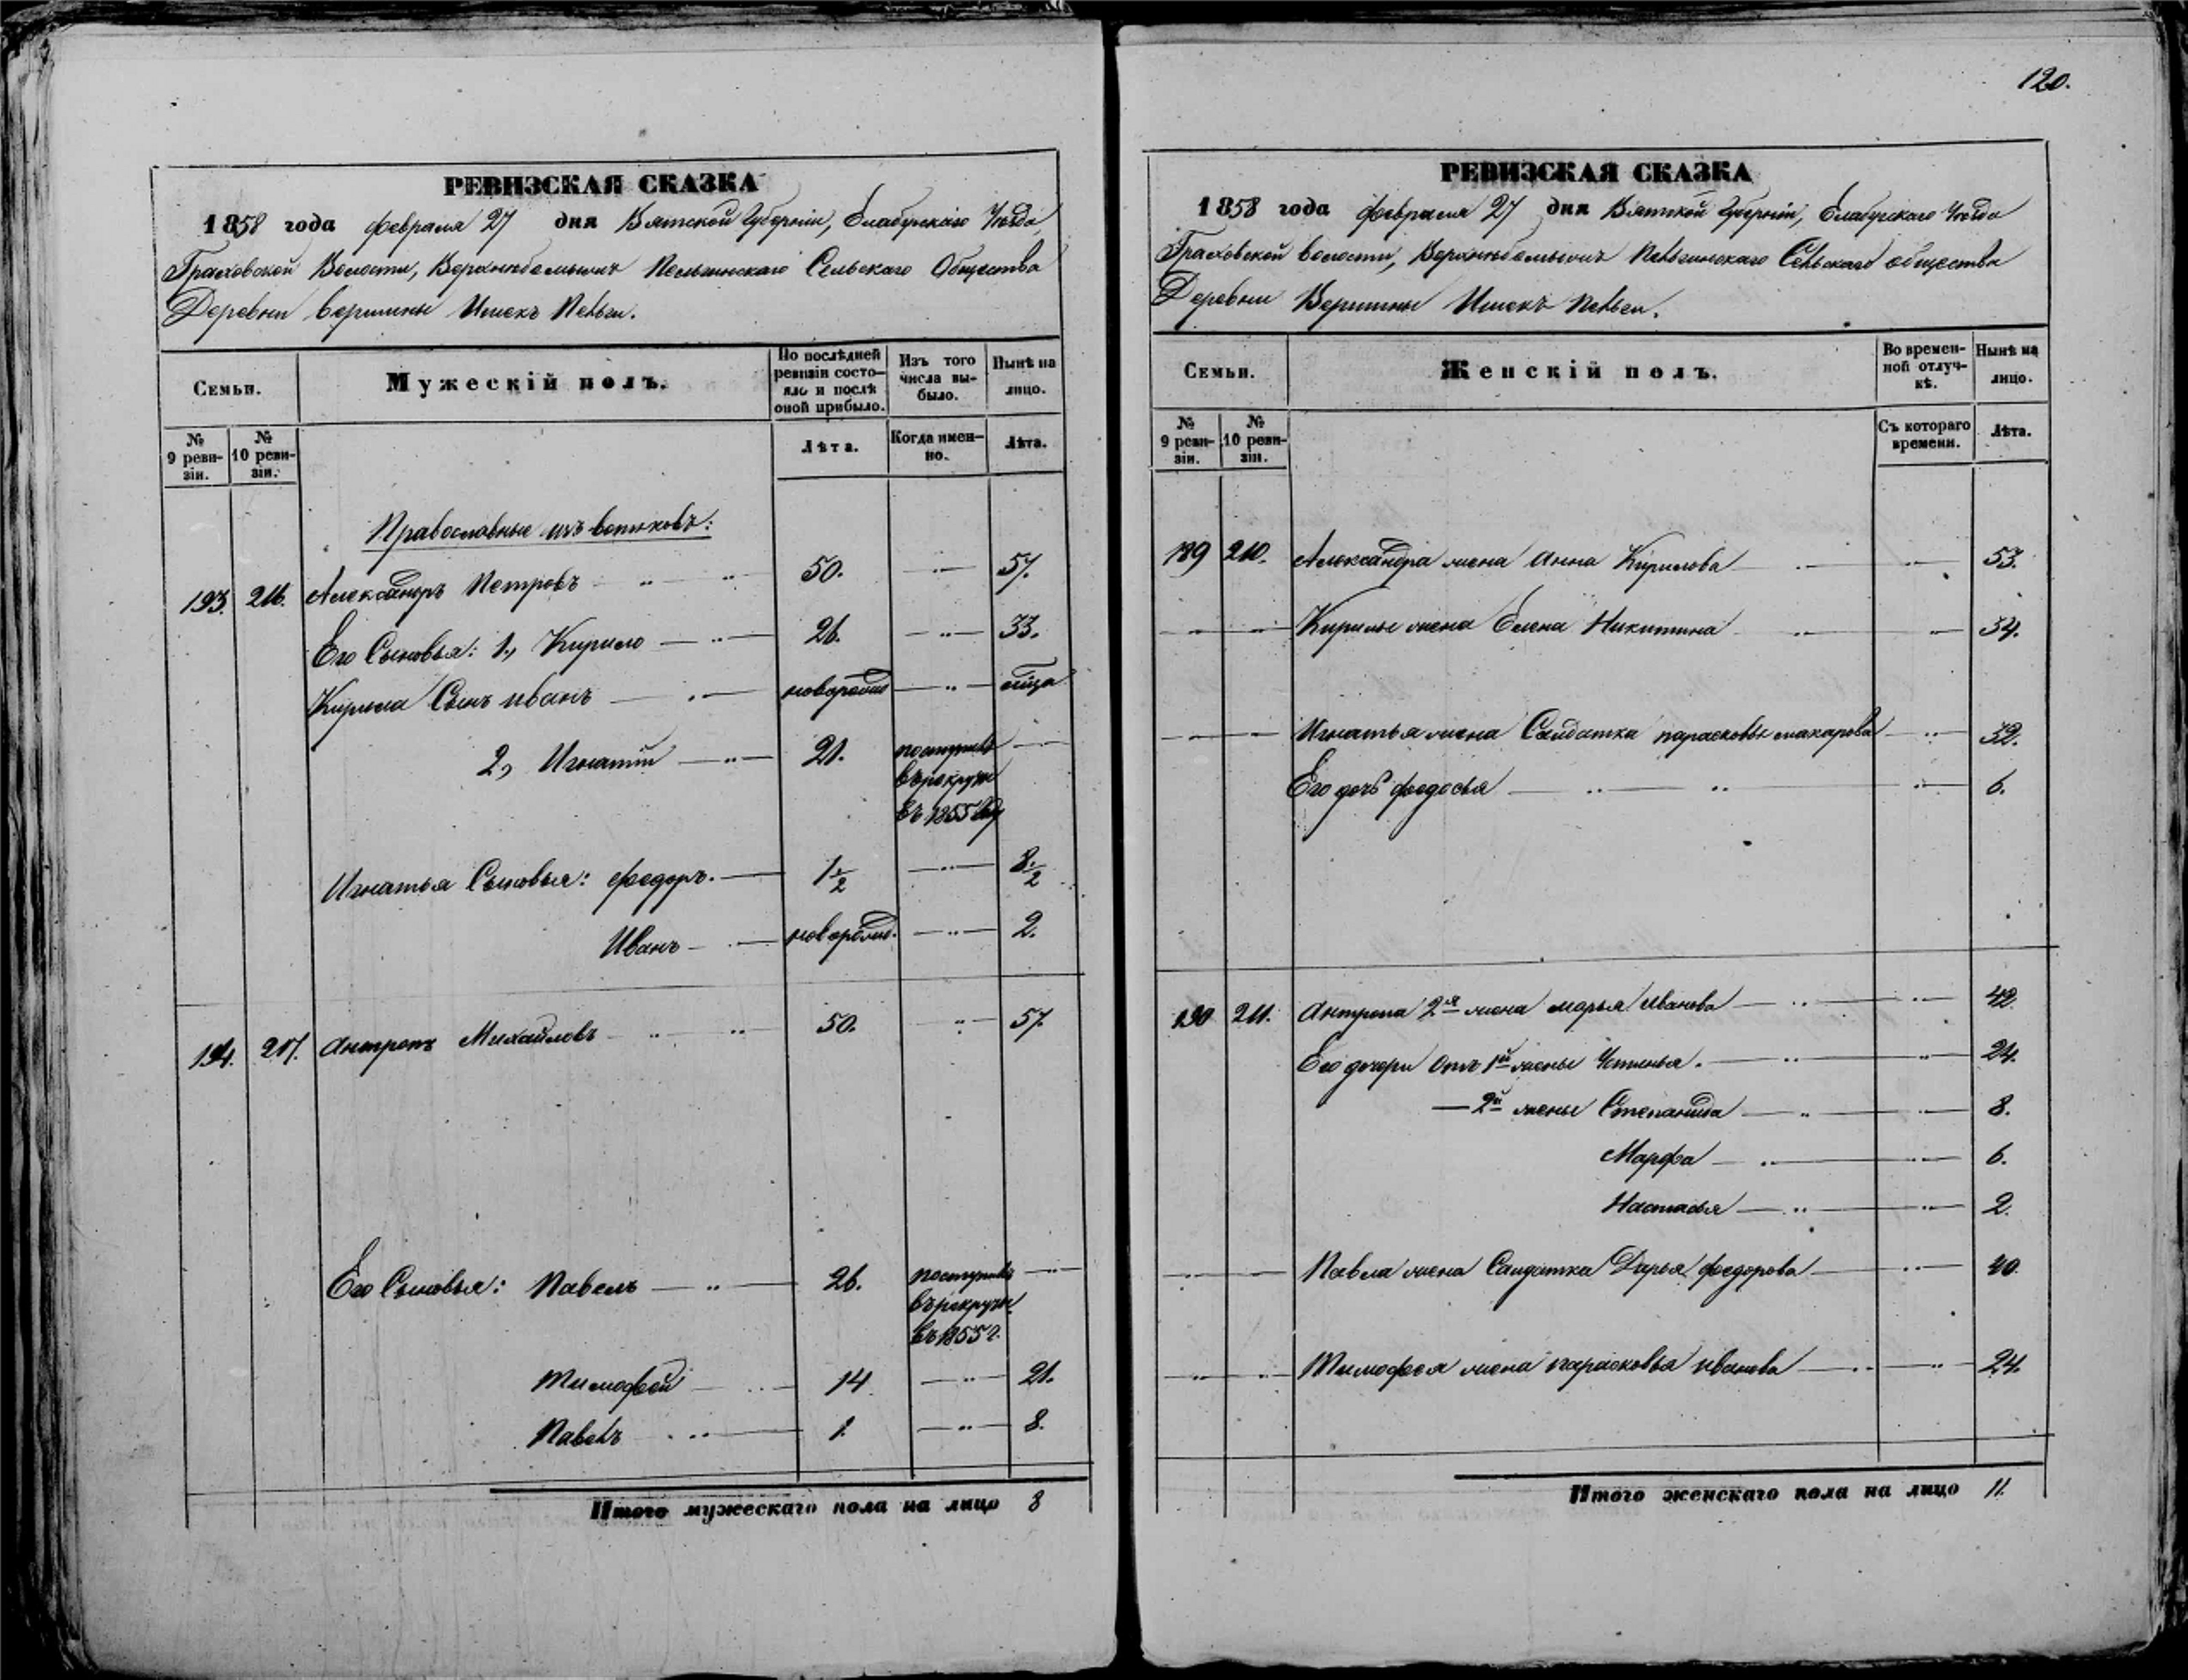 РЕВИЗСКАЯ СКАЗКА
1858 года февраля 27 дня Вятской Губернiи, Елабужскаго Уѣзда,
Граховской Волости, Сельскаго Общества
Деревни вершины Ишекъ Пельги.
Семьи.
Мужескiй полъ.
По послѣдней ревизiи состояло и послѣ оной прибыло.
Изъ того числа выбыло.
Нынѣ на лицо.
№ 9 ревизiи.
№ 10 ревизiи.
Лѣта.
Когда именно.
Лѣта.
Православные изъ вотяковъ:
193. 216. Александръ Петровъ 50. 57.
Его Сыновья: 1, Кирило 26. 33.
Кирила Сынъ иванъ
2, Игнатiй 21. поступилъ
въ рекруты
въ 1855 году
Игнатья Сыновья: федоръ. 1 1/2 8 1/2
Иванъ новорожд. 2.
194. 217. Антропъ Михайловъ 50. 57.
Его Сыновья: Павелъ 26. поступилъ
въ рекруты
въ 1855 г.
Тимофей 14. 21.
Павелъ 1. 8.
Итого мужескаго пола на лицо 8
120.
РЕВИЗСКАЯ СКАЗКА
1858 года февраля 27 дня Вятской Губернiи, Елабужскаго Уѣзда
Граховской волости, Сельскаго общества
Деревни Вершины Ишекъ Пельги.
Семьи.
Женскiй полъ.
Во временной отлучкѣ.
Нынѣ на лицо.
№ 9 ревизiи.
№ 10 ревизiи.
Съ котораго времени.
Лѣта.
189 210. Александра жена Анна Кирилова 53.
Кирилы жена Елена Никитина 34.
Игнатья жена Салдатка парасковья макарова 32.
Его дочь федосья 6.
190 211. Антропа 2я жена марья Иванова 42.
Его дочери отъ 1й жены Устинья. 24.
2й жены Степанида 8.
Марфа 6.
Настасья 2.
Павла жена Салдатка Дарья федорова
Тимофея жена парасковья иванова 24.
Итого женскаго пола на лицо 11.